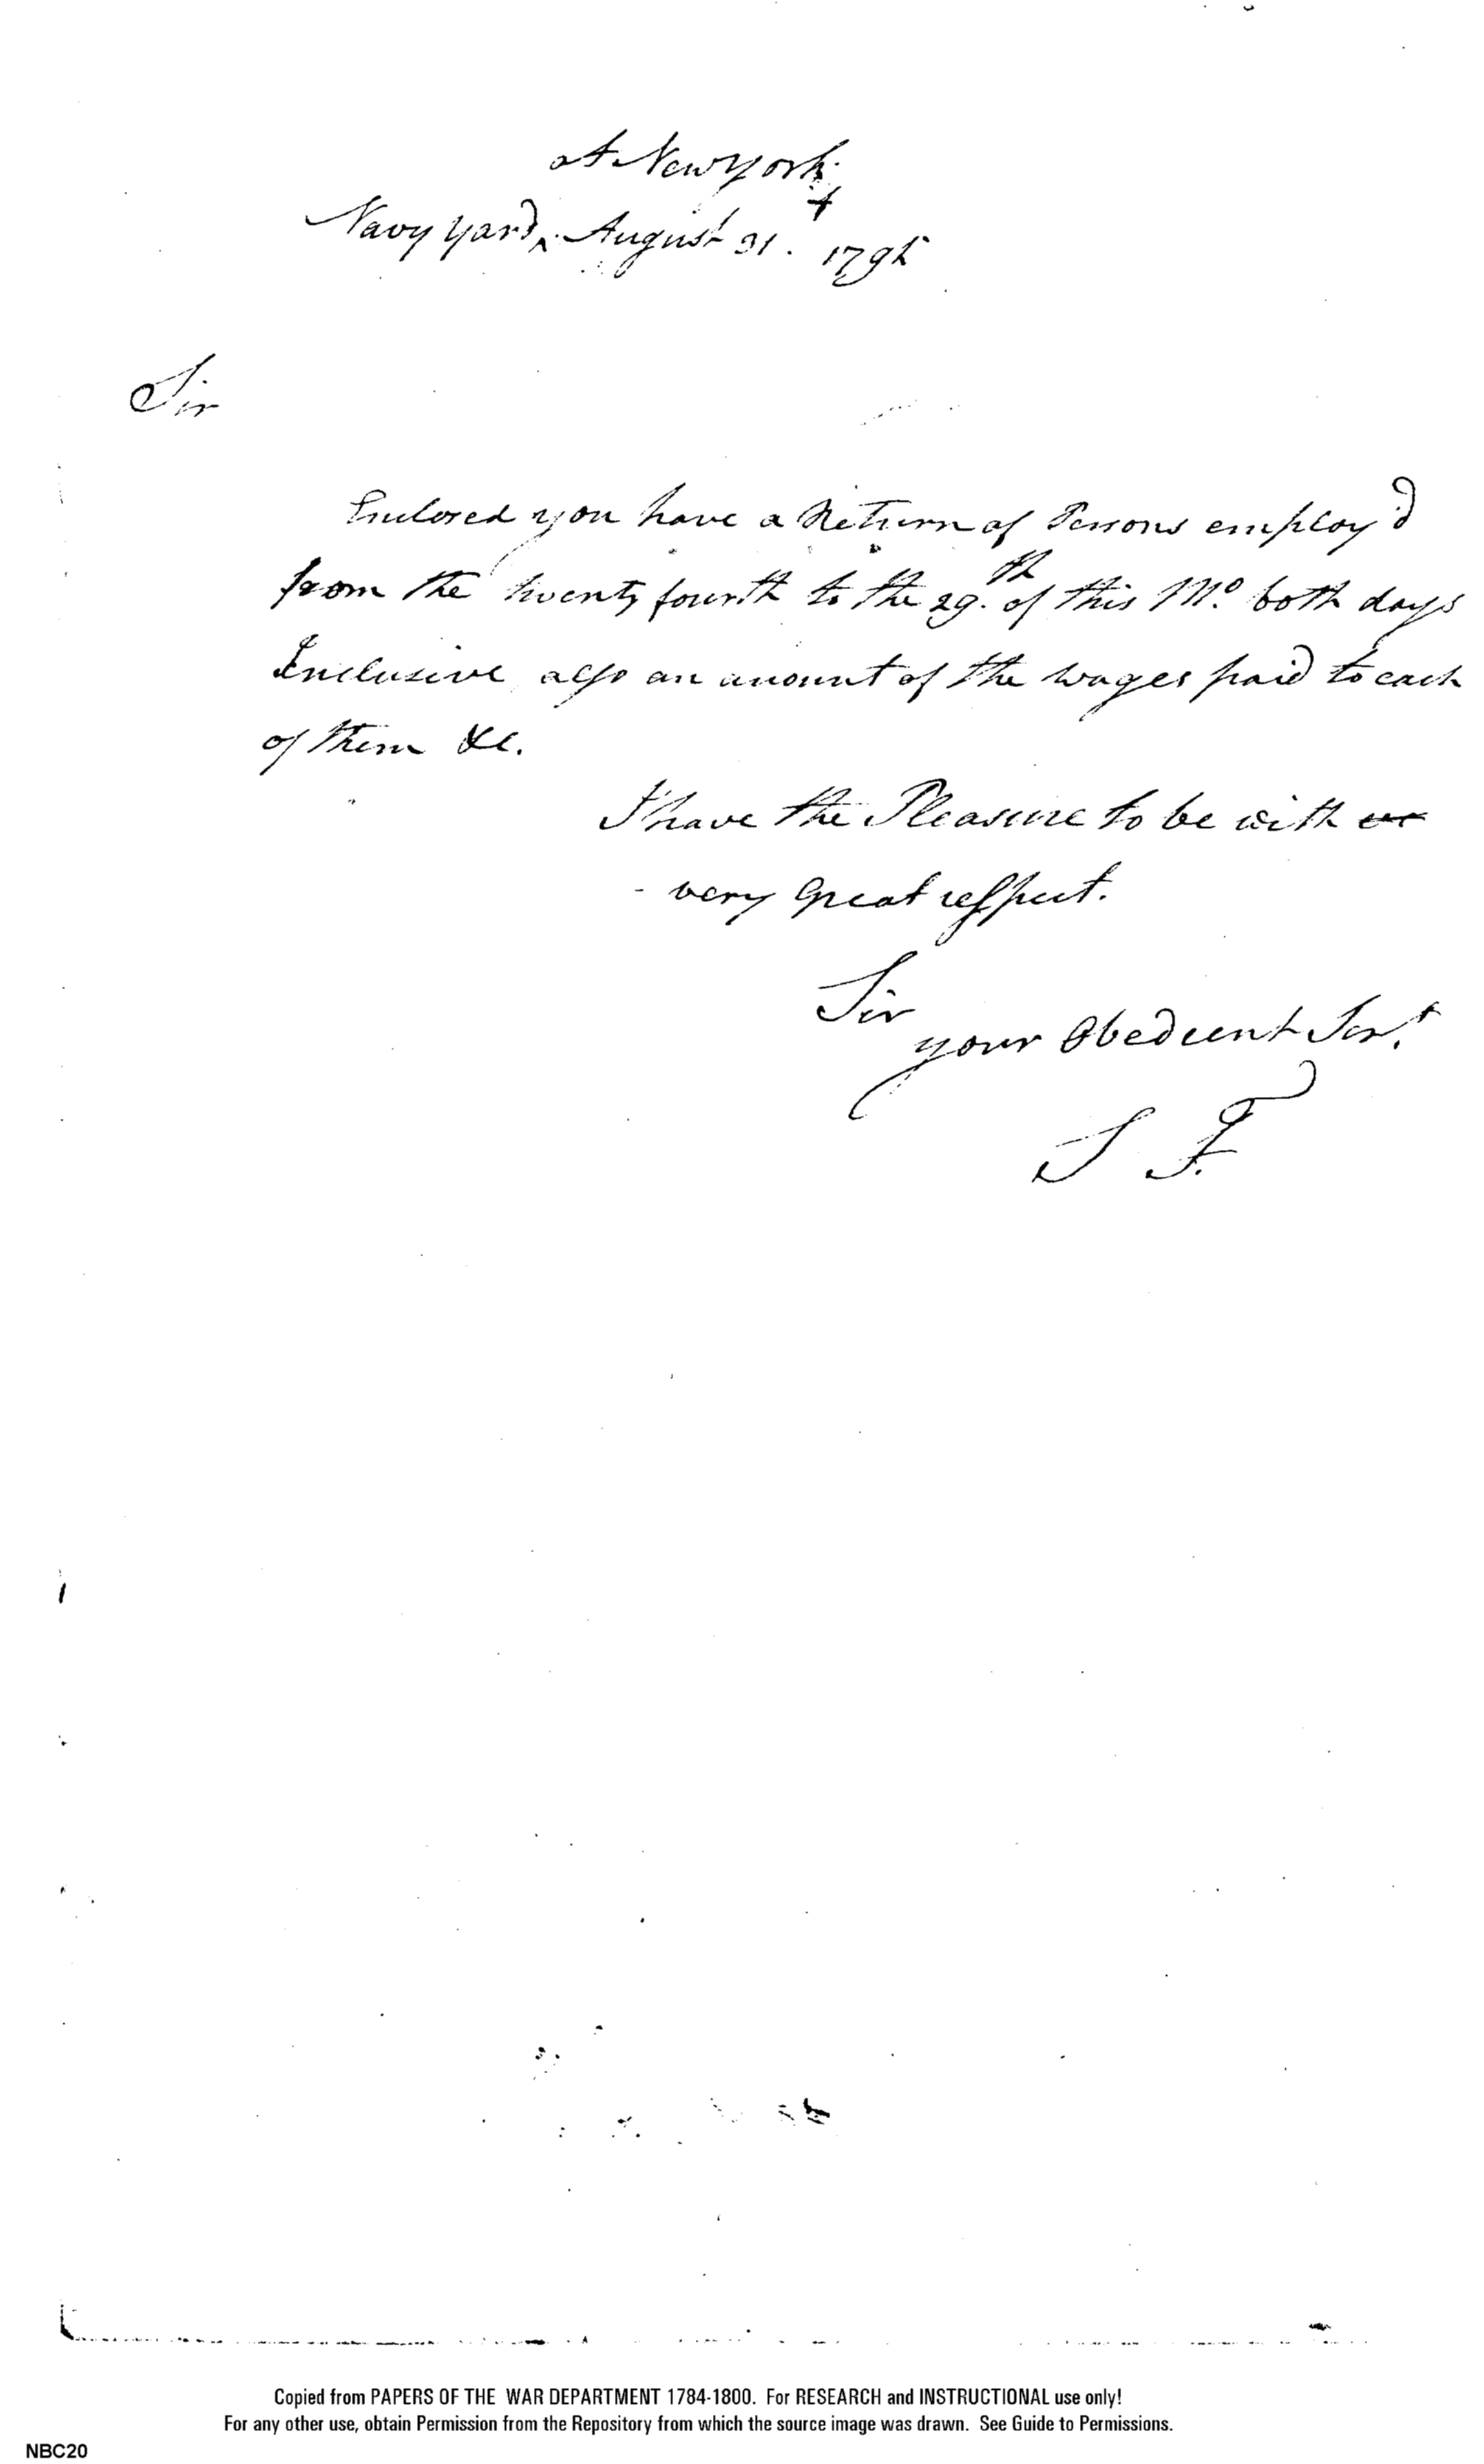 at New York
Navy Yard ^ August 31. 1795
Sir
Enclosed you have a Return of Persons employ'd
from the twenty fourth to the 29.th of this Mo. both days
Inclusive also an amount of the wages paid to each
of them &c.
I have the Pleasure to be with
very Great respect.
Sir
your Obedient Sert.
J F.
Copied from PAPERS OF THE WAR DEPARTMENT 1784-1800. For RESEARCH and INSTRUCTIONAL use only!
For any other use, obtain Permission from the Repository from which the source image was drawn. See Guide to Permissions.
NBC20